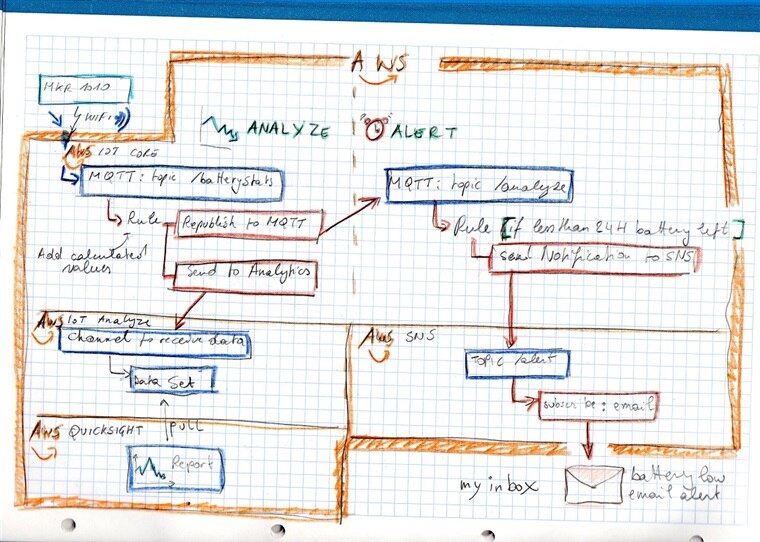 AWS
MKR 1010
WiFi
ANALYZE
ALERT
AWS IOT CORE
MQTT: topic /batteryStats
Rule
Republish to MQTT
Add calculated
values
Send to Analytics
MQTT: topic /analyze
Rule [if less than 24H battery left]
Send Notification to SNS
AWS IoT Analyze
Channel to receive data
Data Set
AWS SNS
Topic /alert
subscribe: email
AWS QUICKSIGHT
PULL
Report
my inbox
battery low
email alert